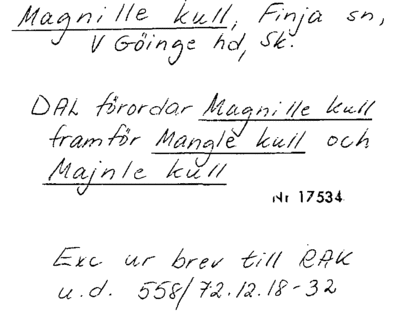 Magnille kull, Finja sn,
V Göinge hd, Sk.
DAL förordar Magnille kull
framför Manglè kull och
Majnle kull
Nr 17534
Exc ur brev till RAK
u.d. 558/72.12.18-32